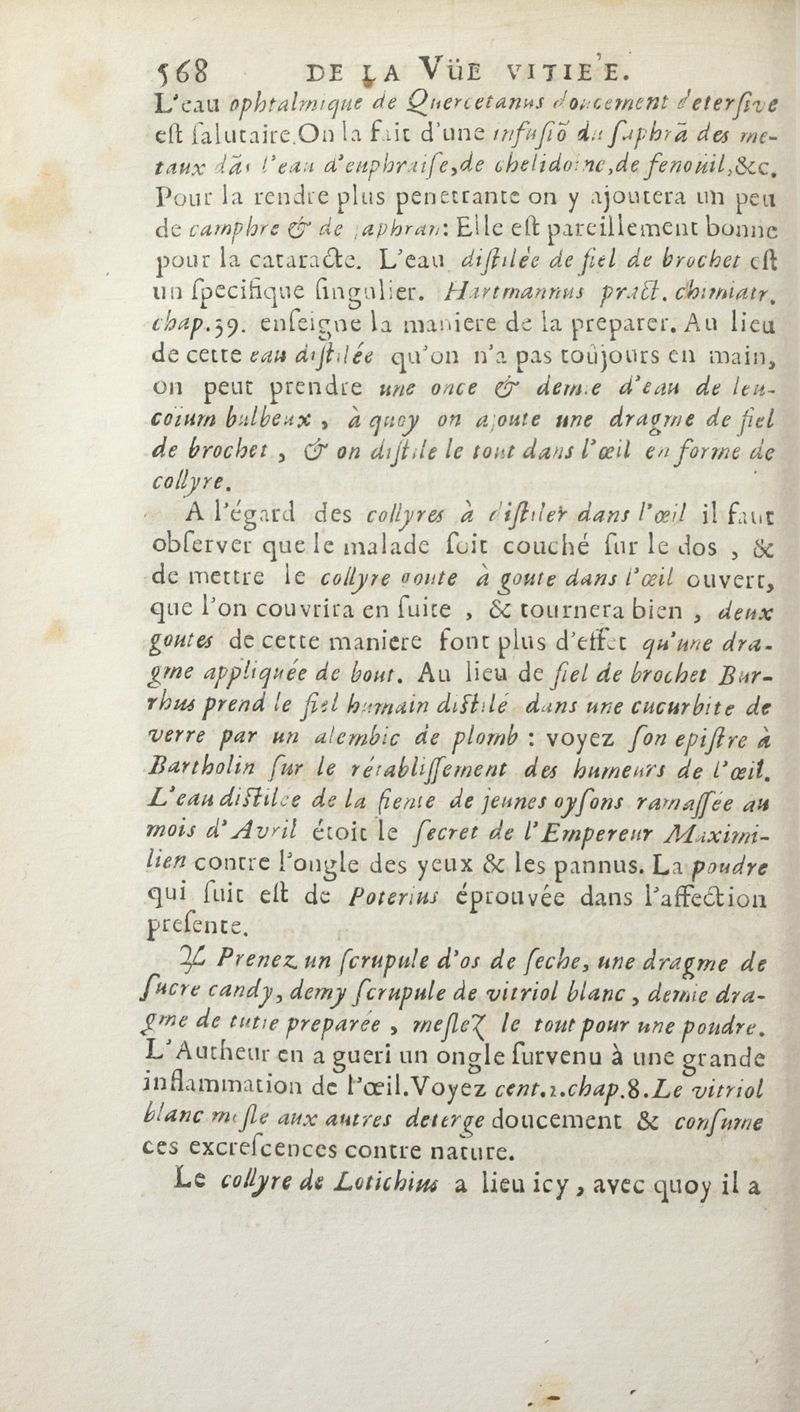 568 DE LA VüE VITIE'E.
L'eau ophtalmique de Quercetanus doucement deterſive
eſt ſalutaire.On la fait d'une infuſiõ du ſaphrã des me-
taux dãs l'eau d'euphraiſe,de chelidoine,de fenouil,&c.
Pour la rendre plus penetrante on y ajoutera un peu
de camphre & de ſaphran: Elle eſt pareillement bonne
pour la cataracte. L'eau diſtilée de fiel de brochet eſt
un ſpecifique ſingulier. Hartmannus pract. chimiatr.
chap.39. enſeigne la maniere de la preparer. Au lieu
de cette eau diſtilée qu'on n'a pas toûjours en main,
on peut prendre une once & demie d'eau de leu-
coium bulbeux , à quoy on ajoute une dragme de fiel
de brochet , & on diſtile le tout dans l'œil en forme de
collyre.
A l'égard des collyres à diſtiler dans l'œil il faut
obſerver que le malade ſoit couché ſur le dos , &
de mettre le collyre goute à goute dans l'œil ouvert,
que l'on couvrira en ſuite , & tournera bien , deux
goutes de cette maniere font plus d'effet qu'une dra-
gme appliquée de bout. Au lieu de fiel de brochet Bur-
rhus prend le fiel humain diſtilé dans une cucurbite de
verre par un alembic de plomb : voyez ſon epiſtre à
Bartholin ſur le rétabliſſement des humeurs de l'œil.
L'eau diſtilée de la fiente de jeunes oyſons ramaſſée au
mois d'Avril étoit le ſecret de l'Empereur Maximi-
lien contre l'ongle des yeux & les pannus. La poudre
qui ſuit eſt de Poterius éprouvée dans l'affection
preſente.
♃ Prenez un ſcrupule d'os de ſeche, une dragme de
ſucre candy, demy ſcrupule de vitriol blanc , demie dra-
gme de tutie preparée , meſlez le tout pour une poudre.
L'Autheur en a gueri un ongle ſurvenu à une grande
inflammation de l'œil.Voyez cent.1.chap.8.Le vitriol
blanc meſle aux autres deterge doucement & conſume
ces excreſcences contre nature.
Le collyre de Lotichius a lieu icy , avec quoy il a